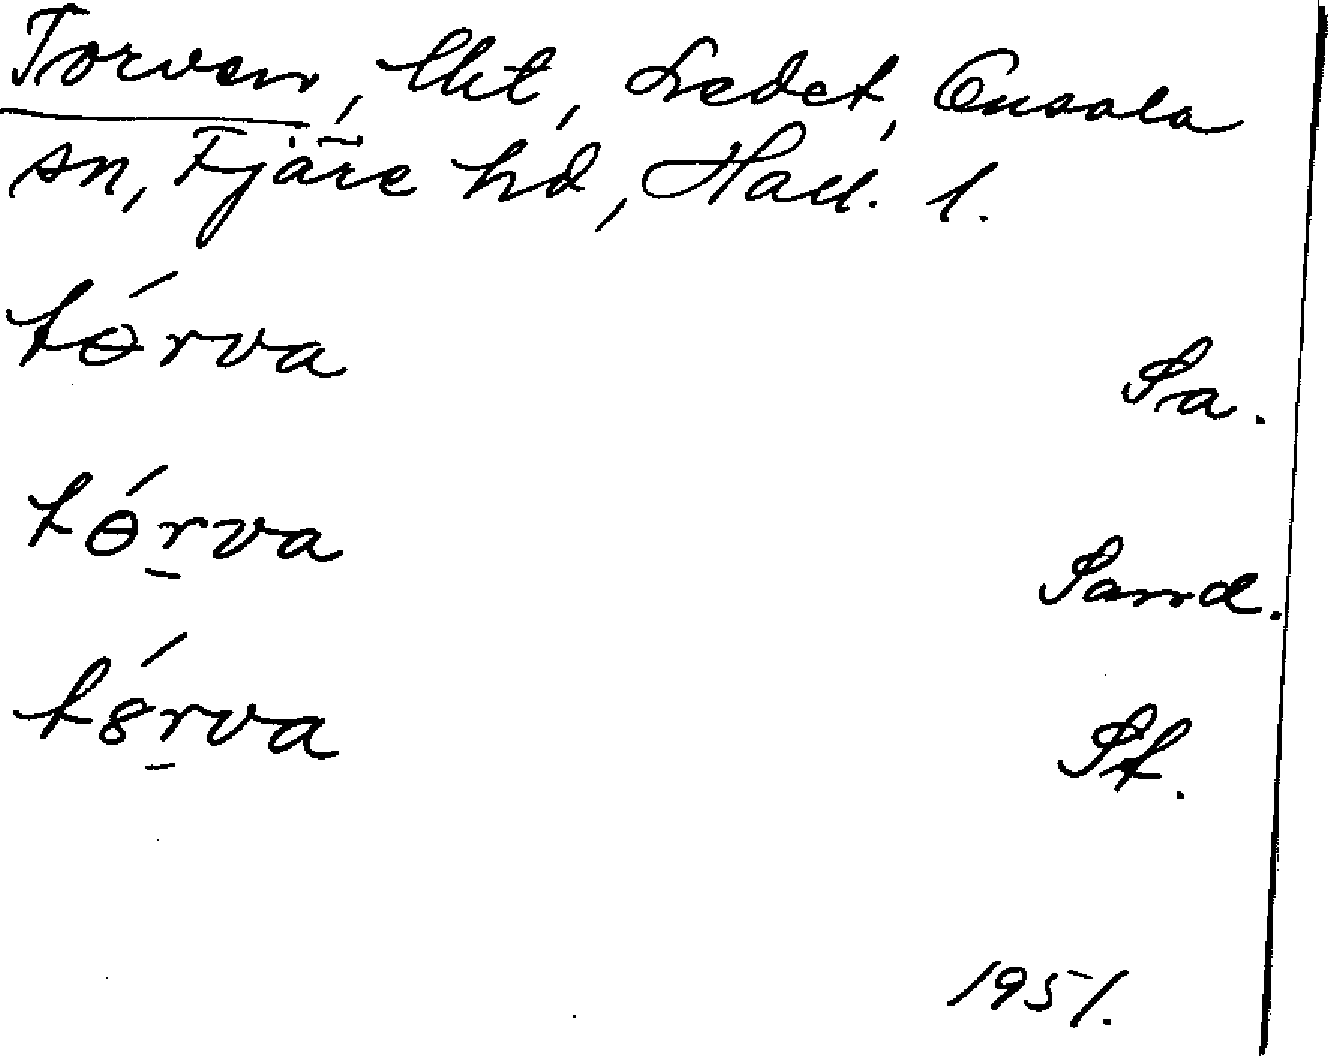 Torven, lht, Ledet, Onsala
sn, Fjäre hd, Hall. l.
tɵ́rva
Sa.
tɵ́r̲va
Sand.
t8́r̲va
St.
1951.